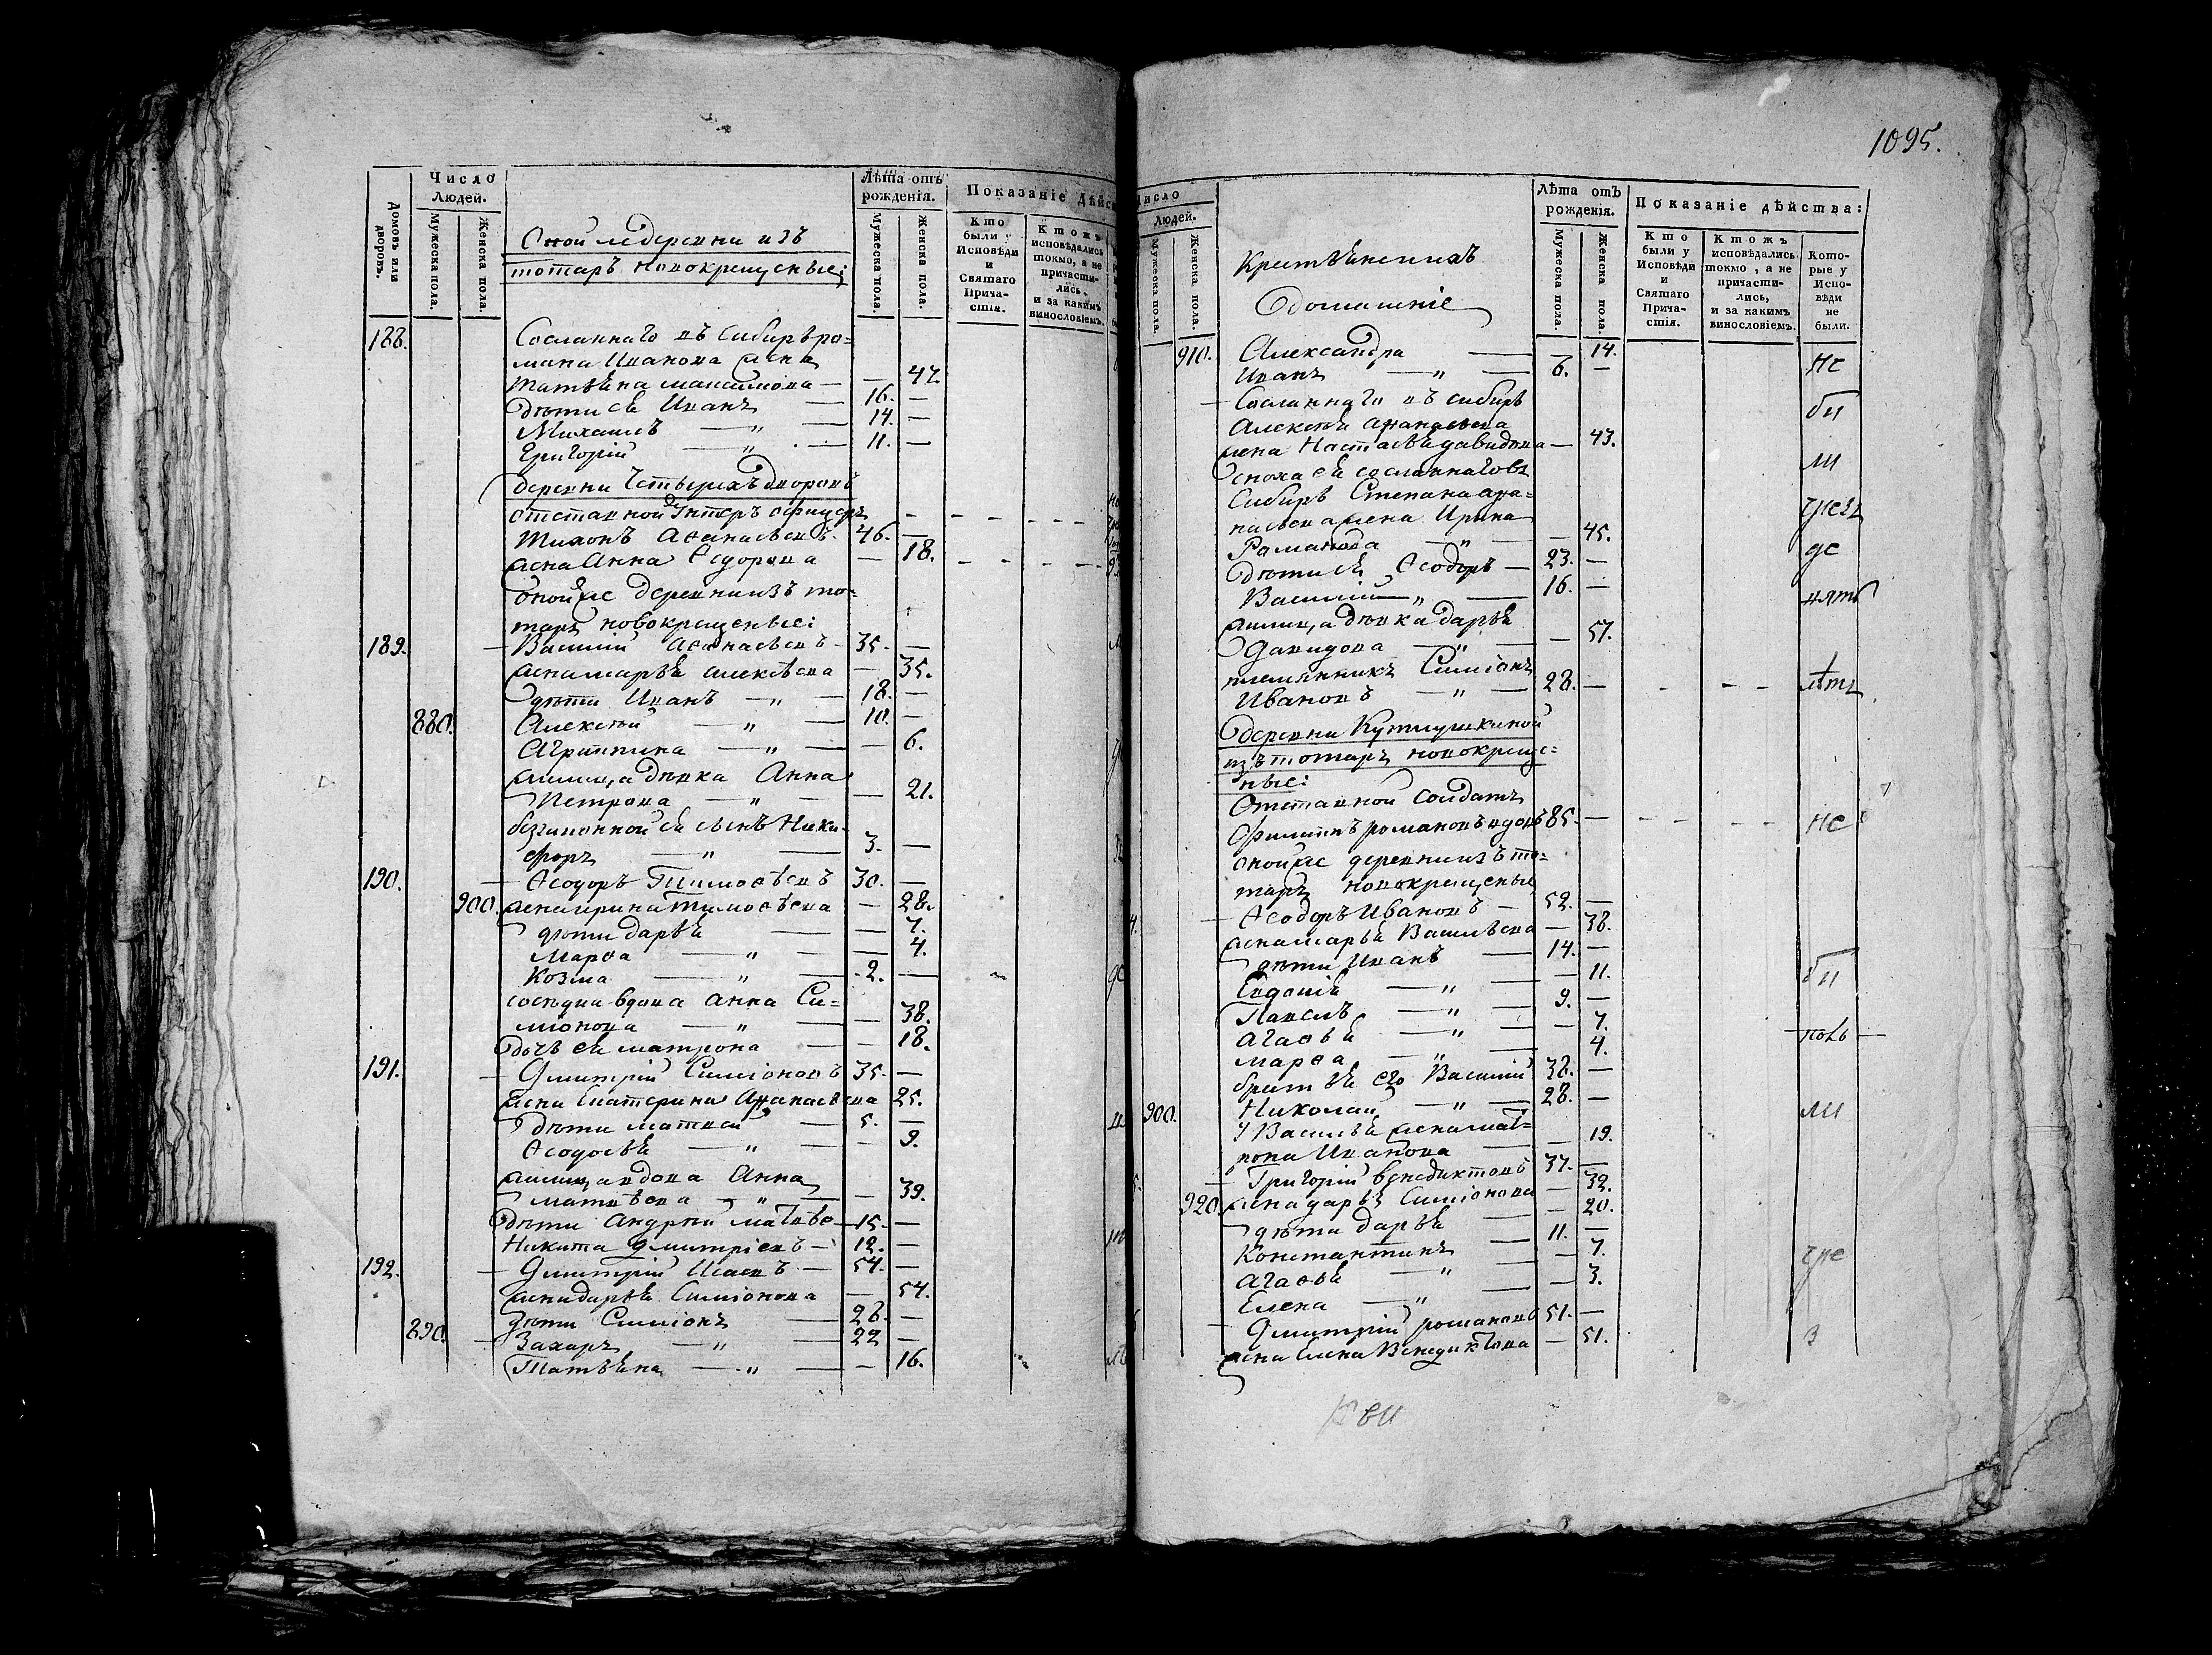 1095.
Домовъ или дворовъ.
Число Людей.
Мужеска пола.
Женска пола.
Оной же деревни изъ
тотаръ новокрещеные;
Лѣта отъ рожденія.
Мужеска пола.
Женска пола.
Показаніе дѣйс
Кто были у Исповѣди и Святаго Причастія.
Ктожъ исповѣдались токмо, а не причастились, и за какимъ винословіемъ.
188. Сосланнаго въ Сибирь ро=
мана Иванова жена
татьяна максимова — — 47.
дѣти ея Иванъ — 16. —
Михаилъ — „ — 14. —
Григорій „ — 11. —
деревни Четырехъ дворовъ
отставной Унтеръ офицеръ
Тихонъ Аѳанасьевъ 46. —
жена Анна Ѳедорова — 18.
оной же деревни изъ то=
таръ новокрещеные:
189. Василий Аѳанасьевъ 35. —
жена марья алексѣева — 35.
дѣти Иванъ — „ — 18. —
880. Алексѣй — „ — 10. —
Агрипина — „ — — 6.
жилица девка Анна
Петрова — „ — — 21.
беззаконной ея сынъ Ники=
форъ — „ — 3. —
190. Ѳеодоръ Тимоѳѣевъ 30. —
900. жена ирина Тимоѳѣева — 28.
дѣти дарья — — 7.
Марѳа — „ — — 4.
Козма — „ — 2. —
соседка вдова анна Си=
міонова — „ — — 38.
дочь ея матрона — — 18.
191. Дмитрій Симіоновъ 35. —
жена Екатерина Афанасьева 25.
дѣти матвей — 5. —
Ѳеодосья — „ — — 9.
жилица вдова Анна
матвѣева — „ — — 39.
дѣти андрей матвѣе — 15. —
Никита дмитріевъ — 12. —
192. Дмитрій Исаевъ — 54. —
жена дарья Симіонова — 54.
дѣти Симіонъ — 26. —
890. Захаръ — „ 22 —
Татьяна — „ — — 16.
Число
Людей.
Мужеска пола.
Женска пола.
Крестьянскихъ
домашніе
Лѣта отъ рожденія.
Мужеска пола.
Женска пола.
Показаніе дѣйства:
Кто были у Исповѣди и Святаго Причастія.
Ктожъ исповѣдались токмо, а не причастились, и за какимъ винословіемъ.
Которые у Исповѣди не были.
910. Александра — — 14.
Иванъ — „ — 6. — не
Сосланнаго въ сибирь
Алексѣя афанасьева бы
жена Настасья давидова — 43.
сноха ея сосланнаго въ ли
Сибирь Степана афа=
насьева жена Ирина
Романова — „ — — 45.
дѣти ея Ѳеодоръ — 23. —
Василий — „ — 16. —
жилица девка дарья
Давидова — „ — — 57.
племянникъ Симіонъ лѣтъ
Ивановъ — „ — 28. —
деревни Кутлушкиной
изъ тотаръ новокреще=
ные:
Отставной Солдатъ
Филипъ романовъ вдовъ 85. — не
оной же деревни изъ то=
таръ новокрещеные
Ѳеодоръ Ивановъ — 52. —
жена марья Васильева — 38.
дѣти Иванъ — 14. —
Евдокія — „ — — 11. бы
Павелъ — „ — 9. —
агаѳья — „ — — 7.
марѳа — „ — — 4.
братья его Василий 38. —
900. Николай — „ — 28. — ли
У Василья жена мат=
рона Иванова — 19.
Григорій венедиктовъ 37. —
920. жена дарья Симіонова — 32.
дѣти дарья — — 20.
Константинъ — 11. —
агаѳья — „ — — 7.
Елена — „ — — 3.
Дмитрій романовъ 51. —
жена Елена Венедиктова — 51.